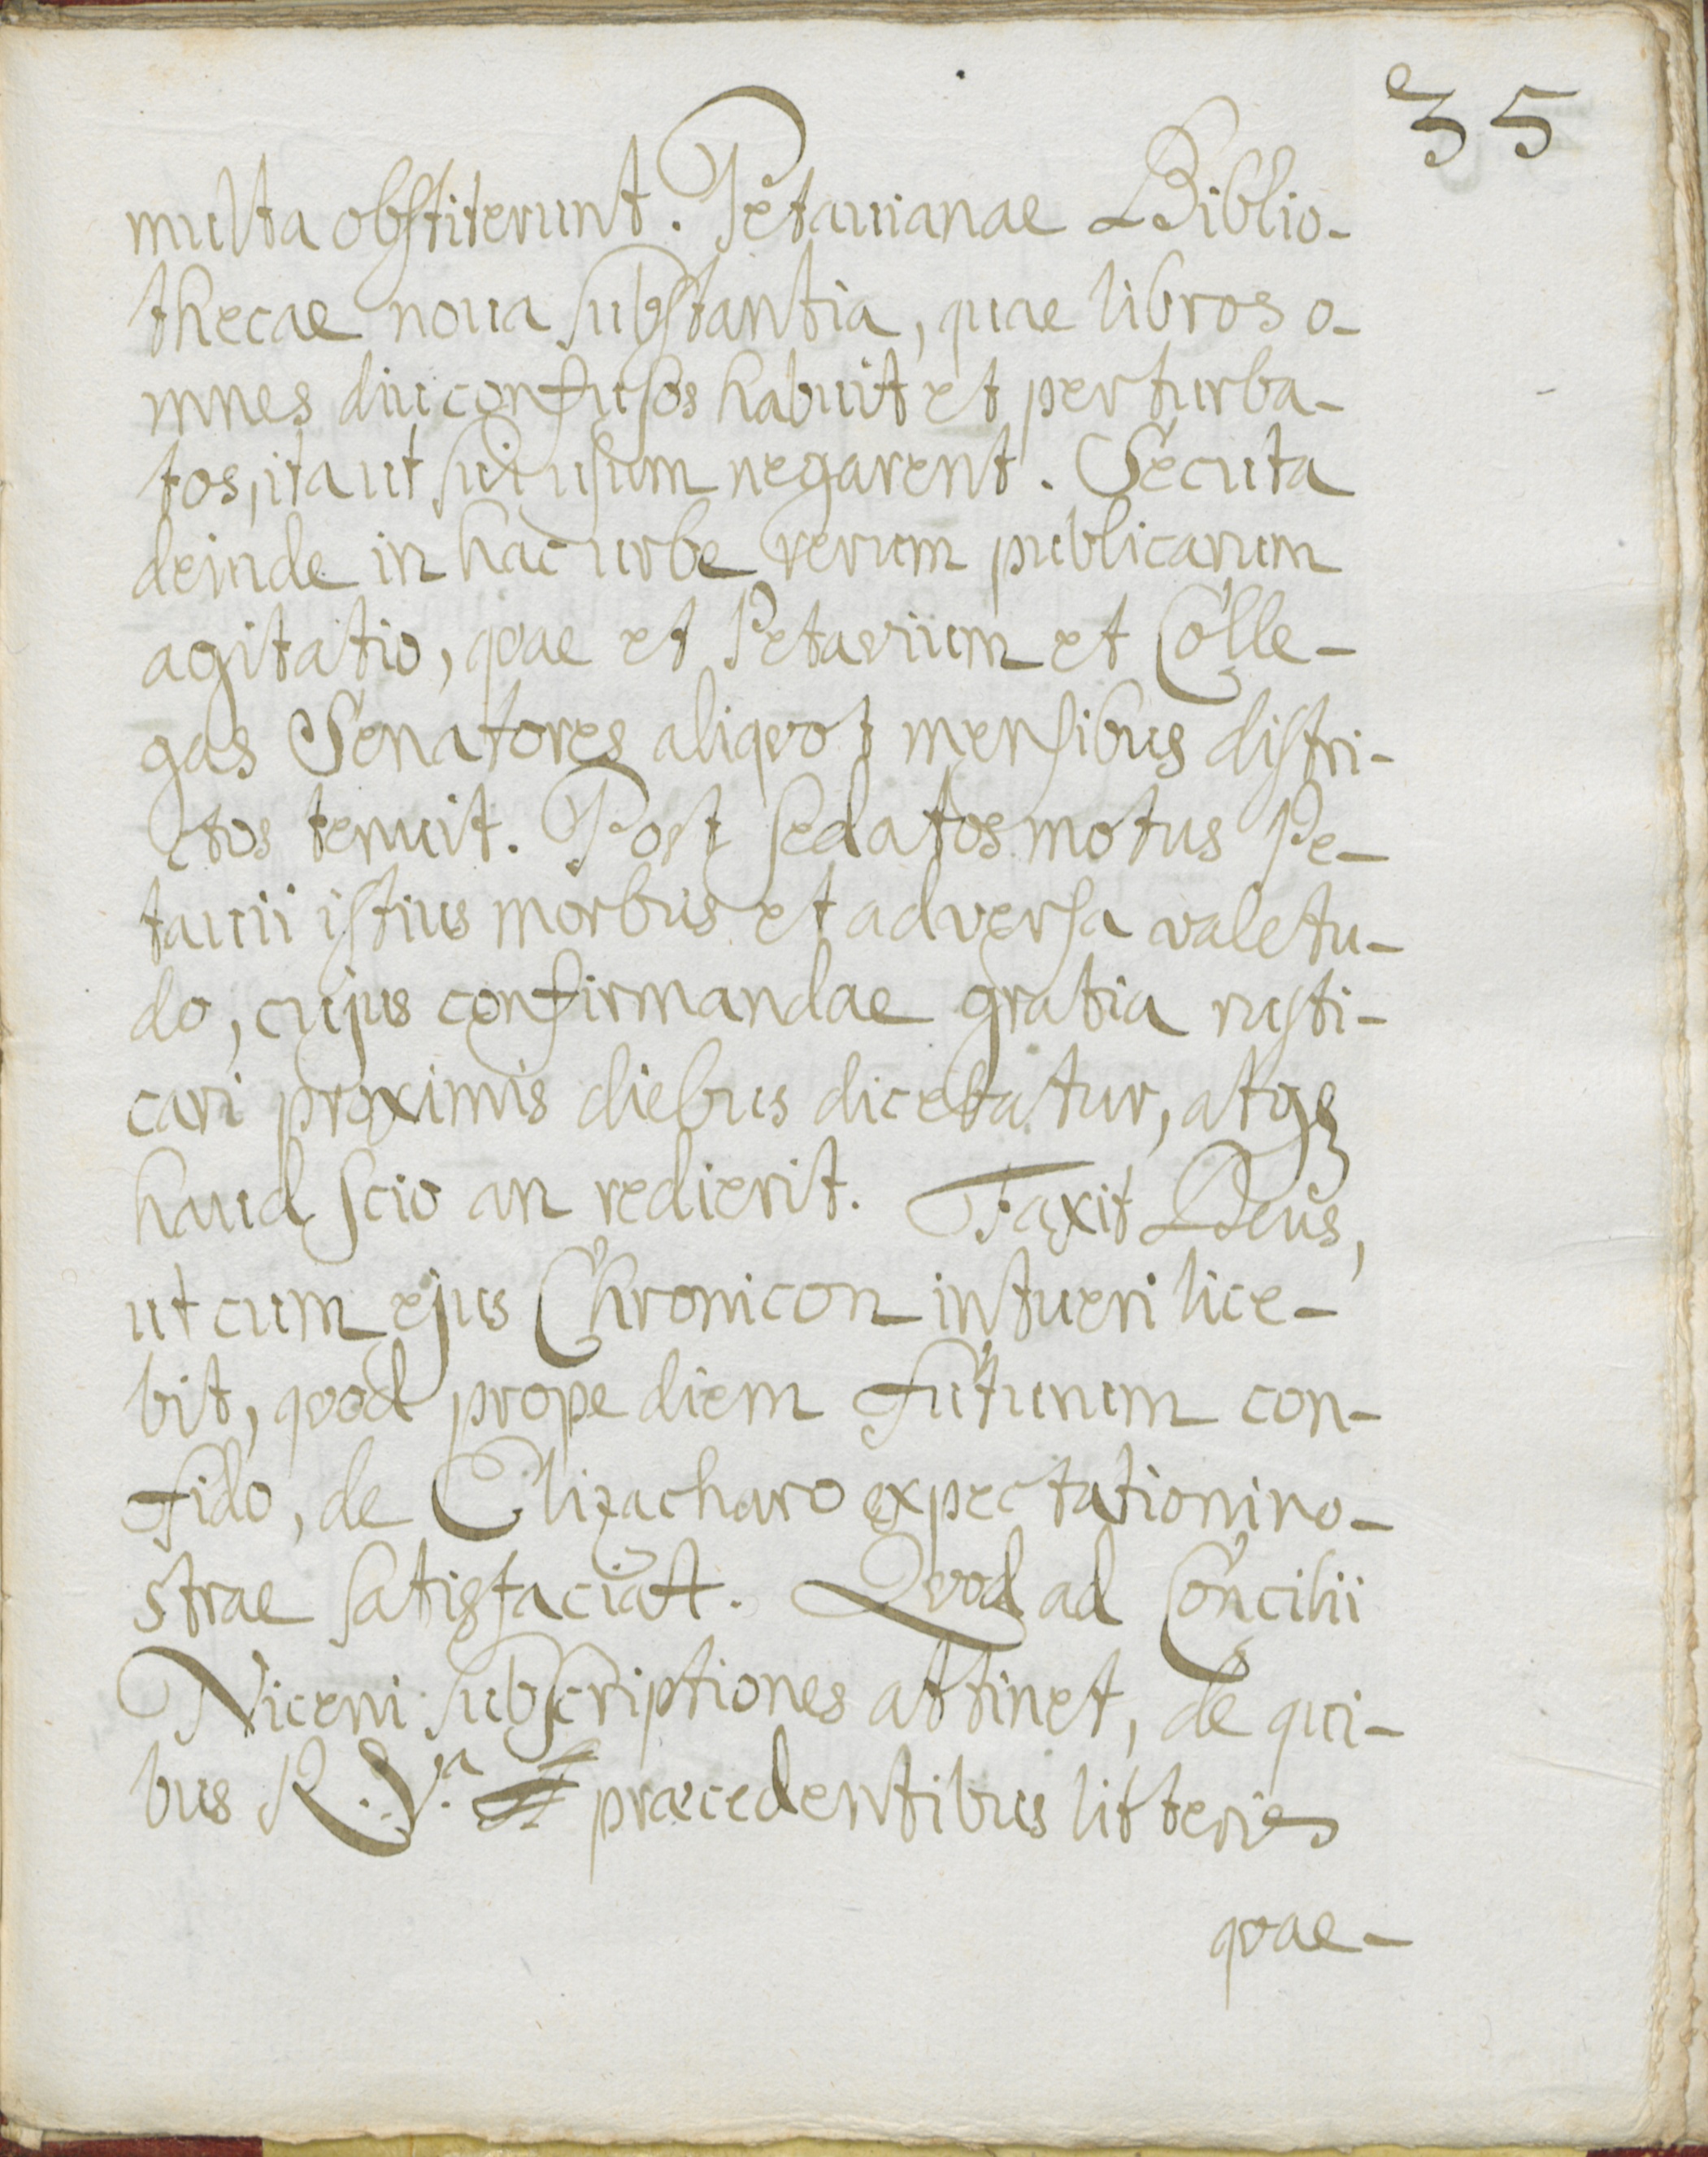 35
multa obstiterunt. Petauianae Biblio-
thecae noua substantia, quae libros o-
mnes diu confusos habuit et perturba-
tos, ita ut sui usum negarent. Secuta
deinde in hac urbe rerum publicarum
agitatio, qvae et Petavium et Colle-
gas Senatores aliqvot mensibus distri-
ctos tenuit. Post sedatos motus Pe-
tauii istius morbus et adversa valetu-
do, cujus confirmandae gratia rusti-
cari proximis diebus dicebatur, atqꝫ
haud scio an redierit. Faxit Deus,
ut cum ejus Chronicon intueri lice-
bit, qvod prope diem futurum con-
fido, de Elizacharo expectationi no-
strae satisfaciat. Qvod ad Concilii
Niceni subscriptiones attinet, de qui-
bus R. V.ª praecedentibus litteris
qvae-